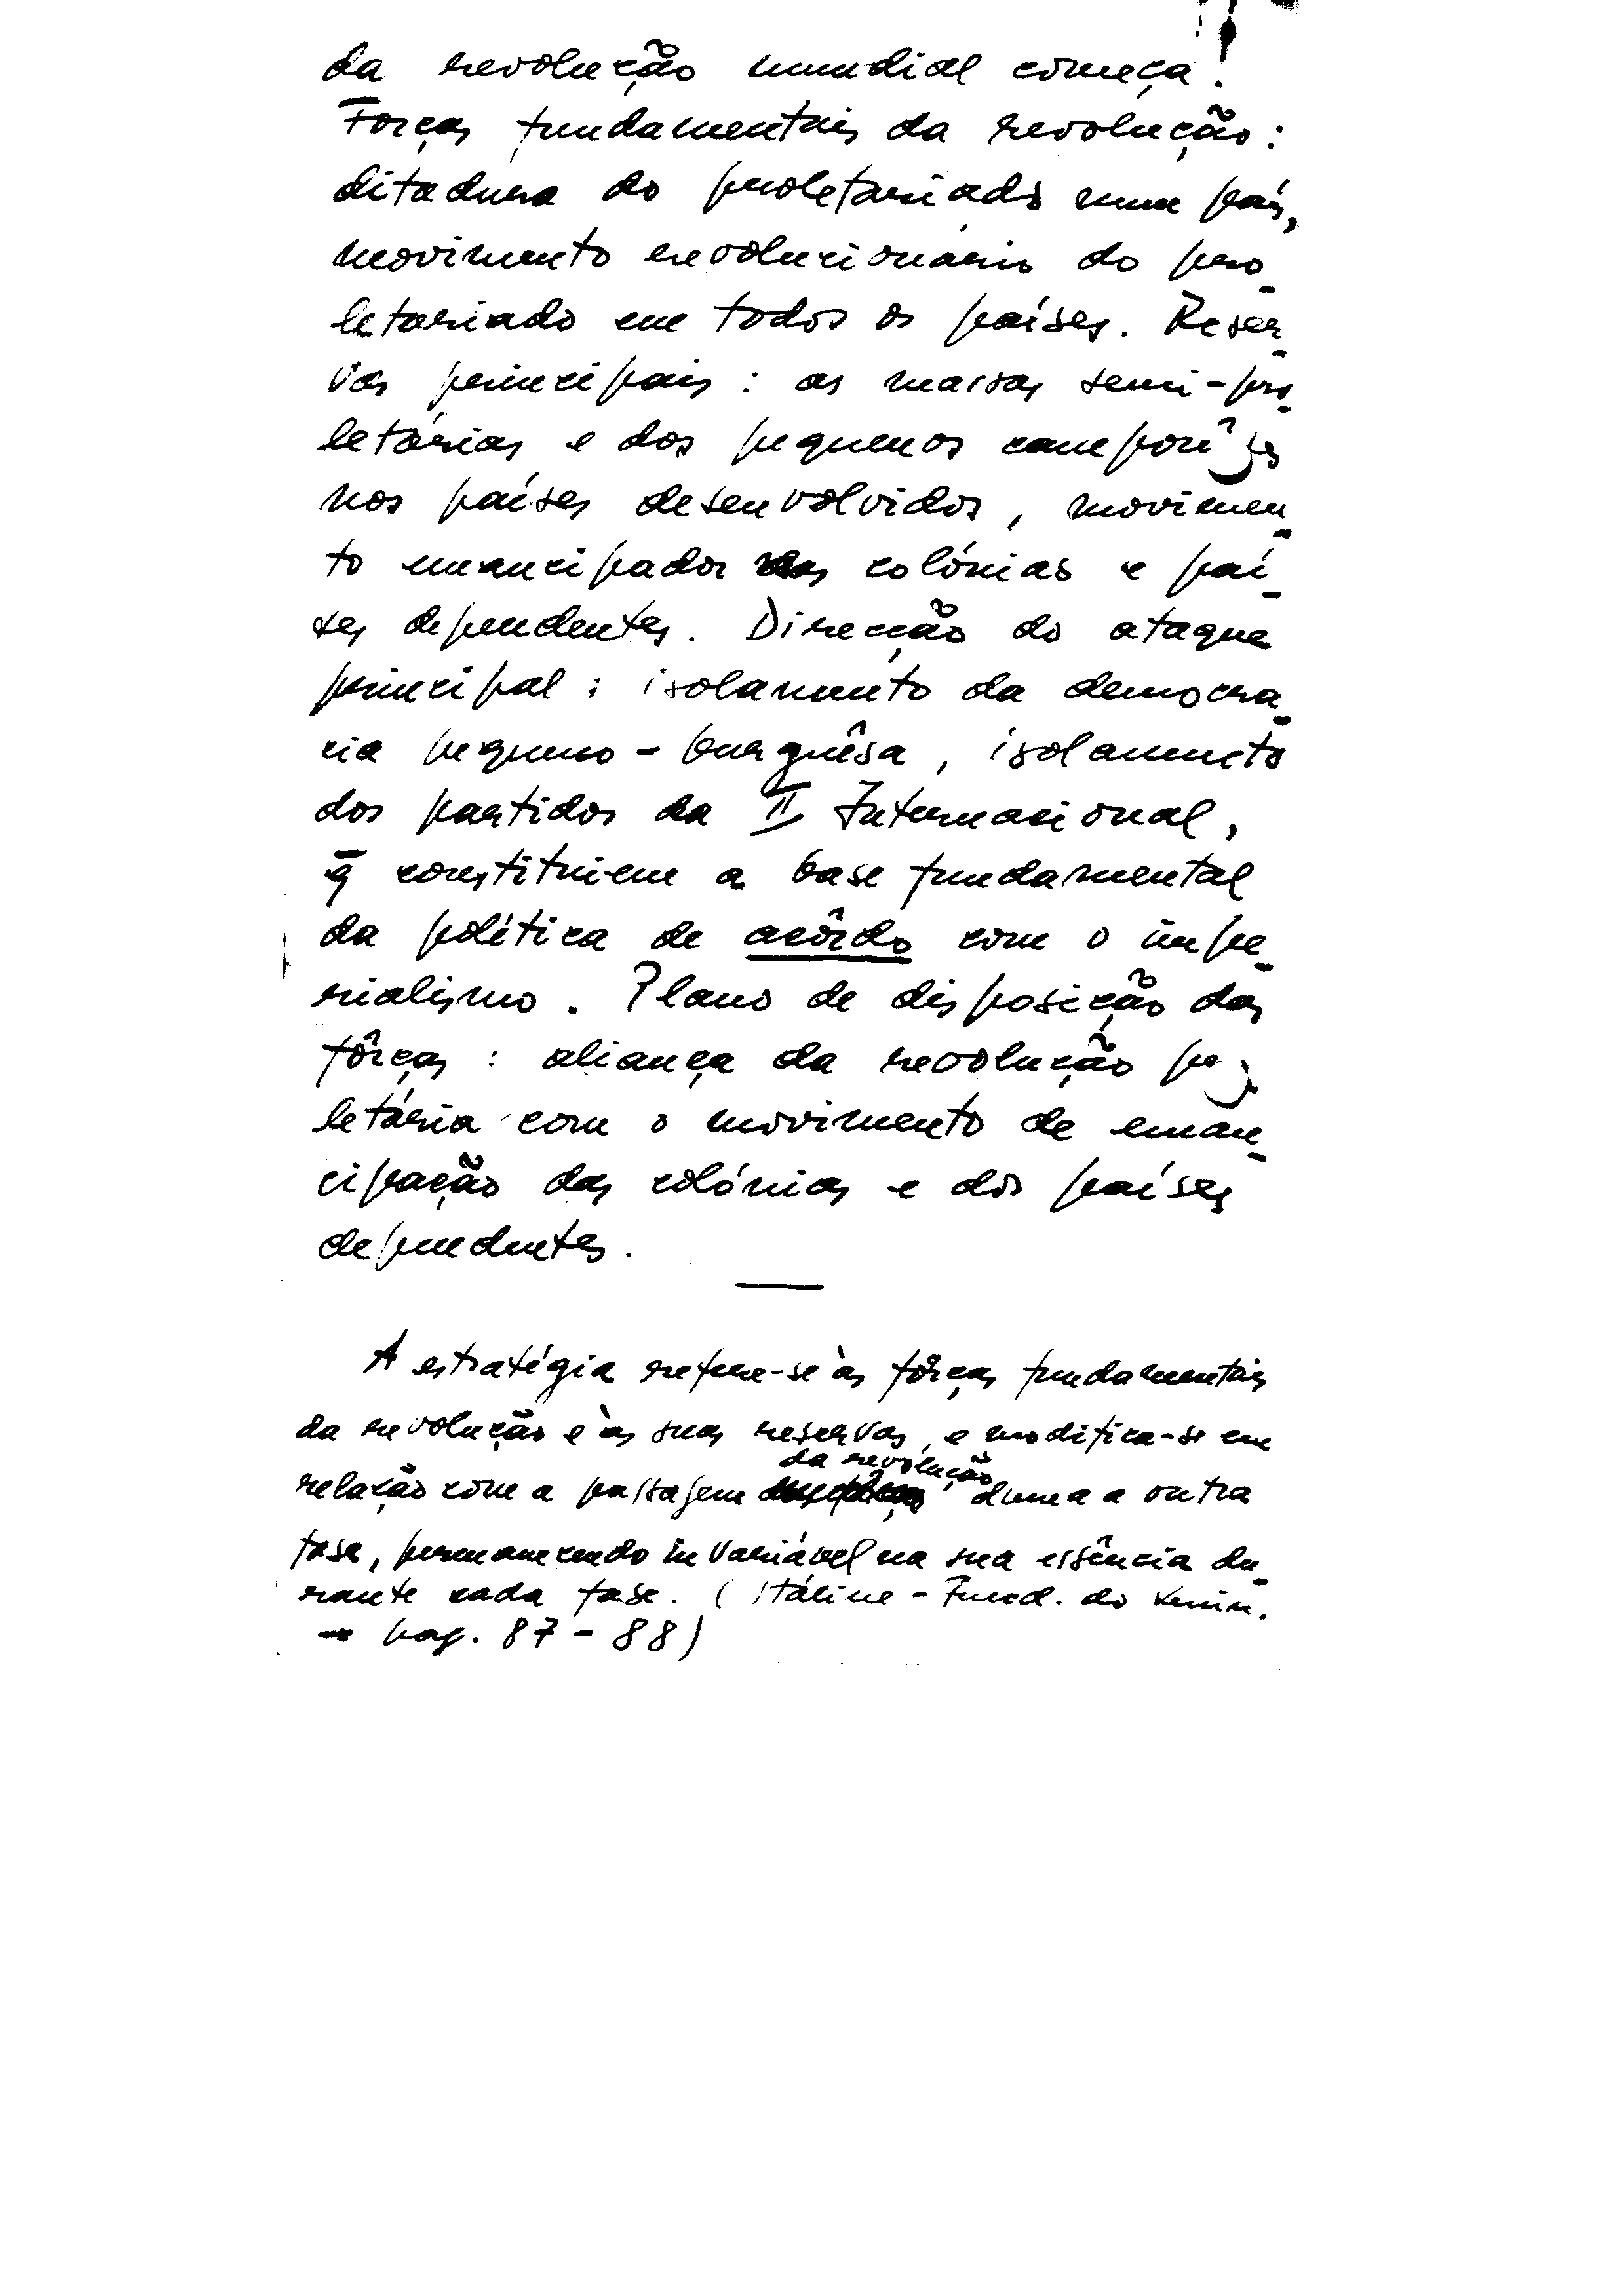 da revolução mundial começa!
Forças fundamentais da revolução:
ditadura do proletariado num país,
movimento revolucionário do pro_
letariado em todos os países. Reser_
vas principais: as massas semi-pro_
letárias e dos pequenos camponêses
nos países desenvolvidos, movimen_
to emancipador nas colónias e paí_
ses dependentes. Direcção do ataque
principal: isolamento da democra_
cia pequeno-burguêsa, isolamento
dos partidos da II Internacional,
q̄ constituiem a base fundamental
da política de acôrdo com o impe_
rialismo. Plano de disposição das
fôrças: aliança da revolução pro
letária com o movimento de eman_
cipação das colónias e dos países
dependentes.
A estratégia refere-se às fôrças fundamentais
da revolução e às suas reservas, e modifica-se em
relação com a passagem da revolução duma a outra
fase, permanecendo invariável na sua essência du_
rante cada fase. (Stáline - Fund. do Lenin.
pag. 87-88)